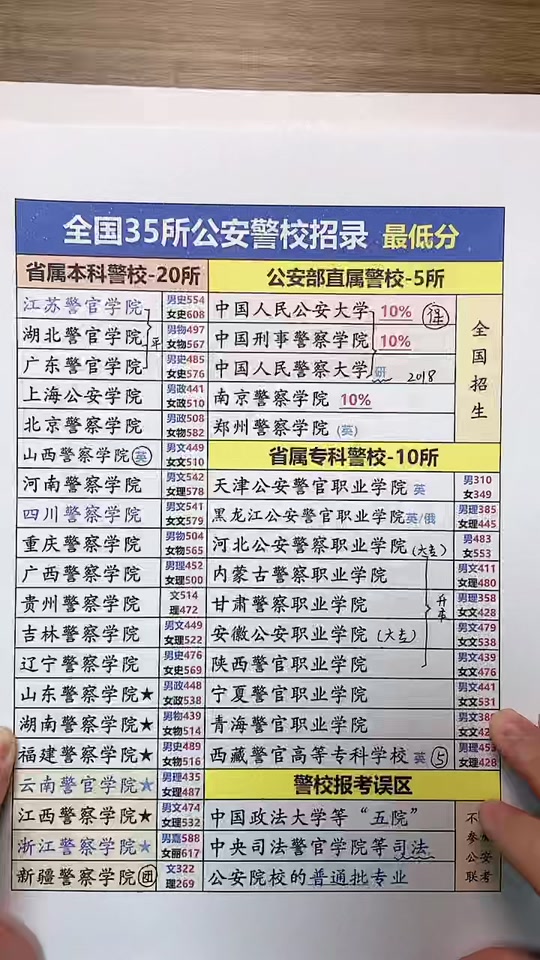 全国35所公安警校招录 最低分
省属本科警校-20所
江苏警官学院 男史554 女史608
湖北警官学院 男物497 女物567
平
广东警官学院 男史485 女史576
上海公安学院 男政441 女政510
北京警察学院 男政508 女物582
山西警察学院 英 男文449 女文510
河南警察学院 男文542 女理578
四川警察学院 男文541 女文579
重庆警察学院 男物504 女物565
广西警察学院 男理452 女理500
贵州警察学院 文514 理472
吉林警察学院 男文449 女理522
辽宁警察学院 男史476 女史563
山东警察学院★ 男政448 女政538
湖南警察学院★ 男物439 女物514
福建警察学院★ 男史489 女物516
云南警官学院★ 男理435 女理487
江西警察学院★ 男文474 女理532
浙江警察学院★ 男嘉588 女丽617
新疆警察学院 团 文322 理269
公安部直属警校-5所
中国人民公安大学 10%
中国刑事警察学院 10%
中国人民警察大学 研 2018
南京警察学院 10%
郑州警察学院 (英)
全国招生
省属专科警校-10所
天津公安警官职业学院 英 男310 女349
黑龙江公安警官职业学院 英/俄 男理385 女理445
河北公安警察职业学院 男483 女553
内蒙古警察职业学院 男文411 女理480
甘肃警察职业学院 男理358 女文428
升本
安徽公安职业学院 男文479 女文538
陕西警官职业学院 男文439 女文476
宁夏警官职业学院 男文441 女文531
青海警官职业学院
西藏警官高等专科学校 英 ⑤ 女理428
警校报考误区
中国政法大学等“五院”
中央司法警官学院等司法
公安院校的普通批专业
公安
联考